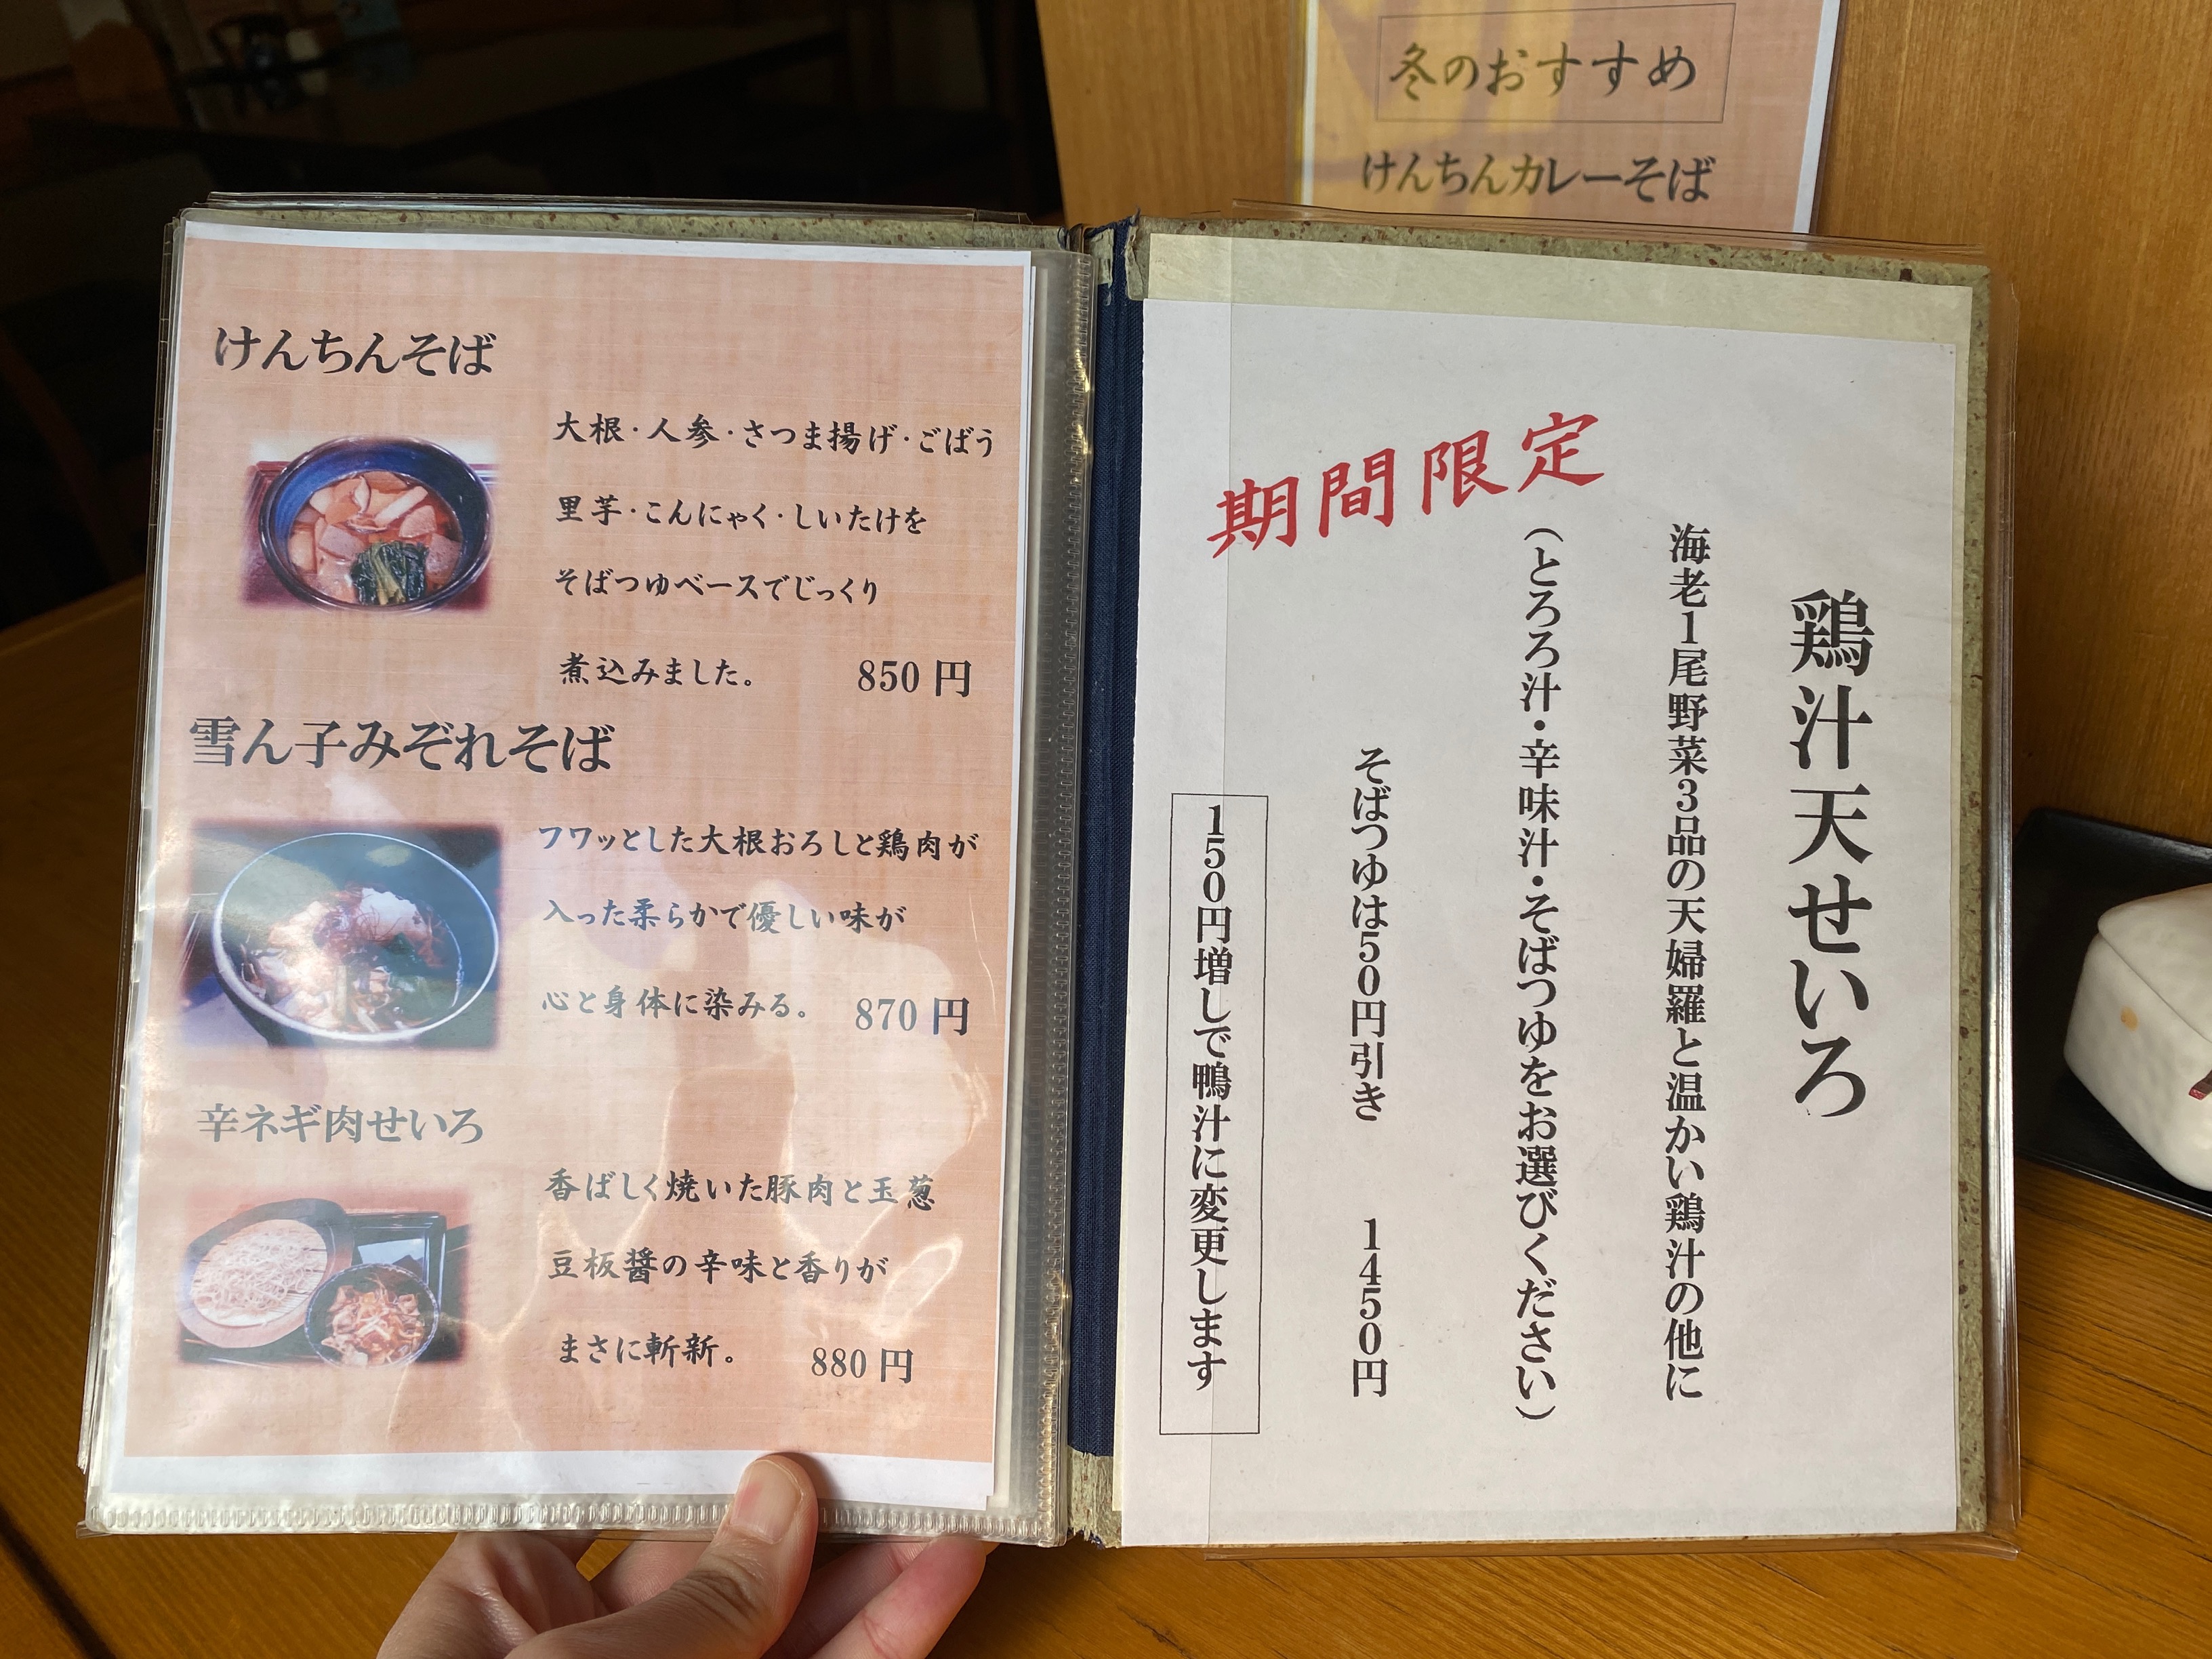 冬のおすすめ
けんちんカレーそば
けんちんそば
大根・人参・さつま揚げ・ごぼう
里芋・こんにゃく・しいたけを
そばつゆベースでじっくり
煮込みました。 850 円
雪ん子みぞれそば
フワッとした大根おろしと鶏肉が
入った柔らかで優しい味が
心と身体に染みる。 870 円
辛ネギ肉せいろ
香ばしく焼いた豚肉と玉葱
豆板醤の辛味と香りが
まさに斬新。 880 円
期間限定
鶏汁天せいろ
海老1尾野菜3品の天婦羅と温かい鶏汁の他に
（とろろ汁・辛味汁・そばつゆをお選びください）
そばつゆは50円引き 1450円
150円増しで鴨汁に変更します